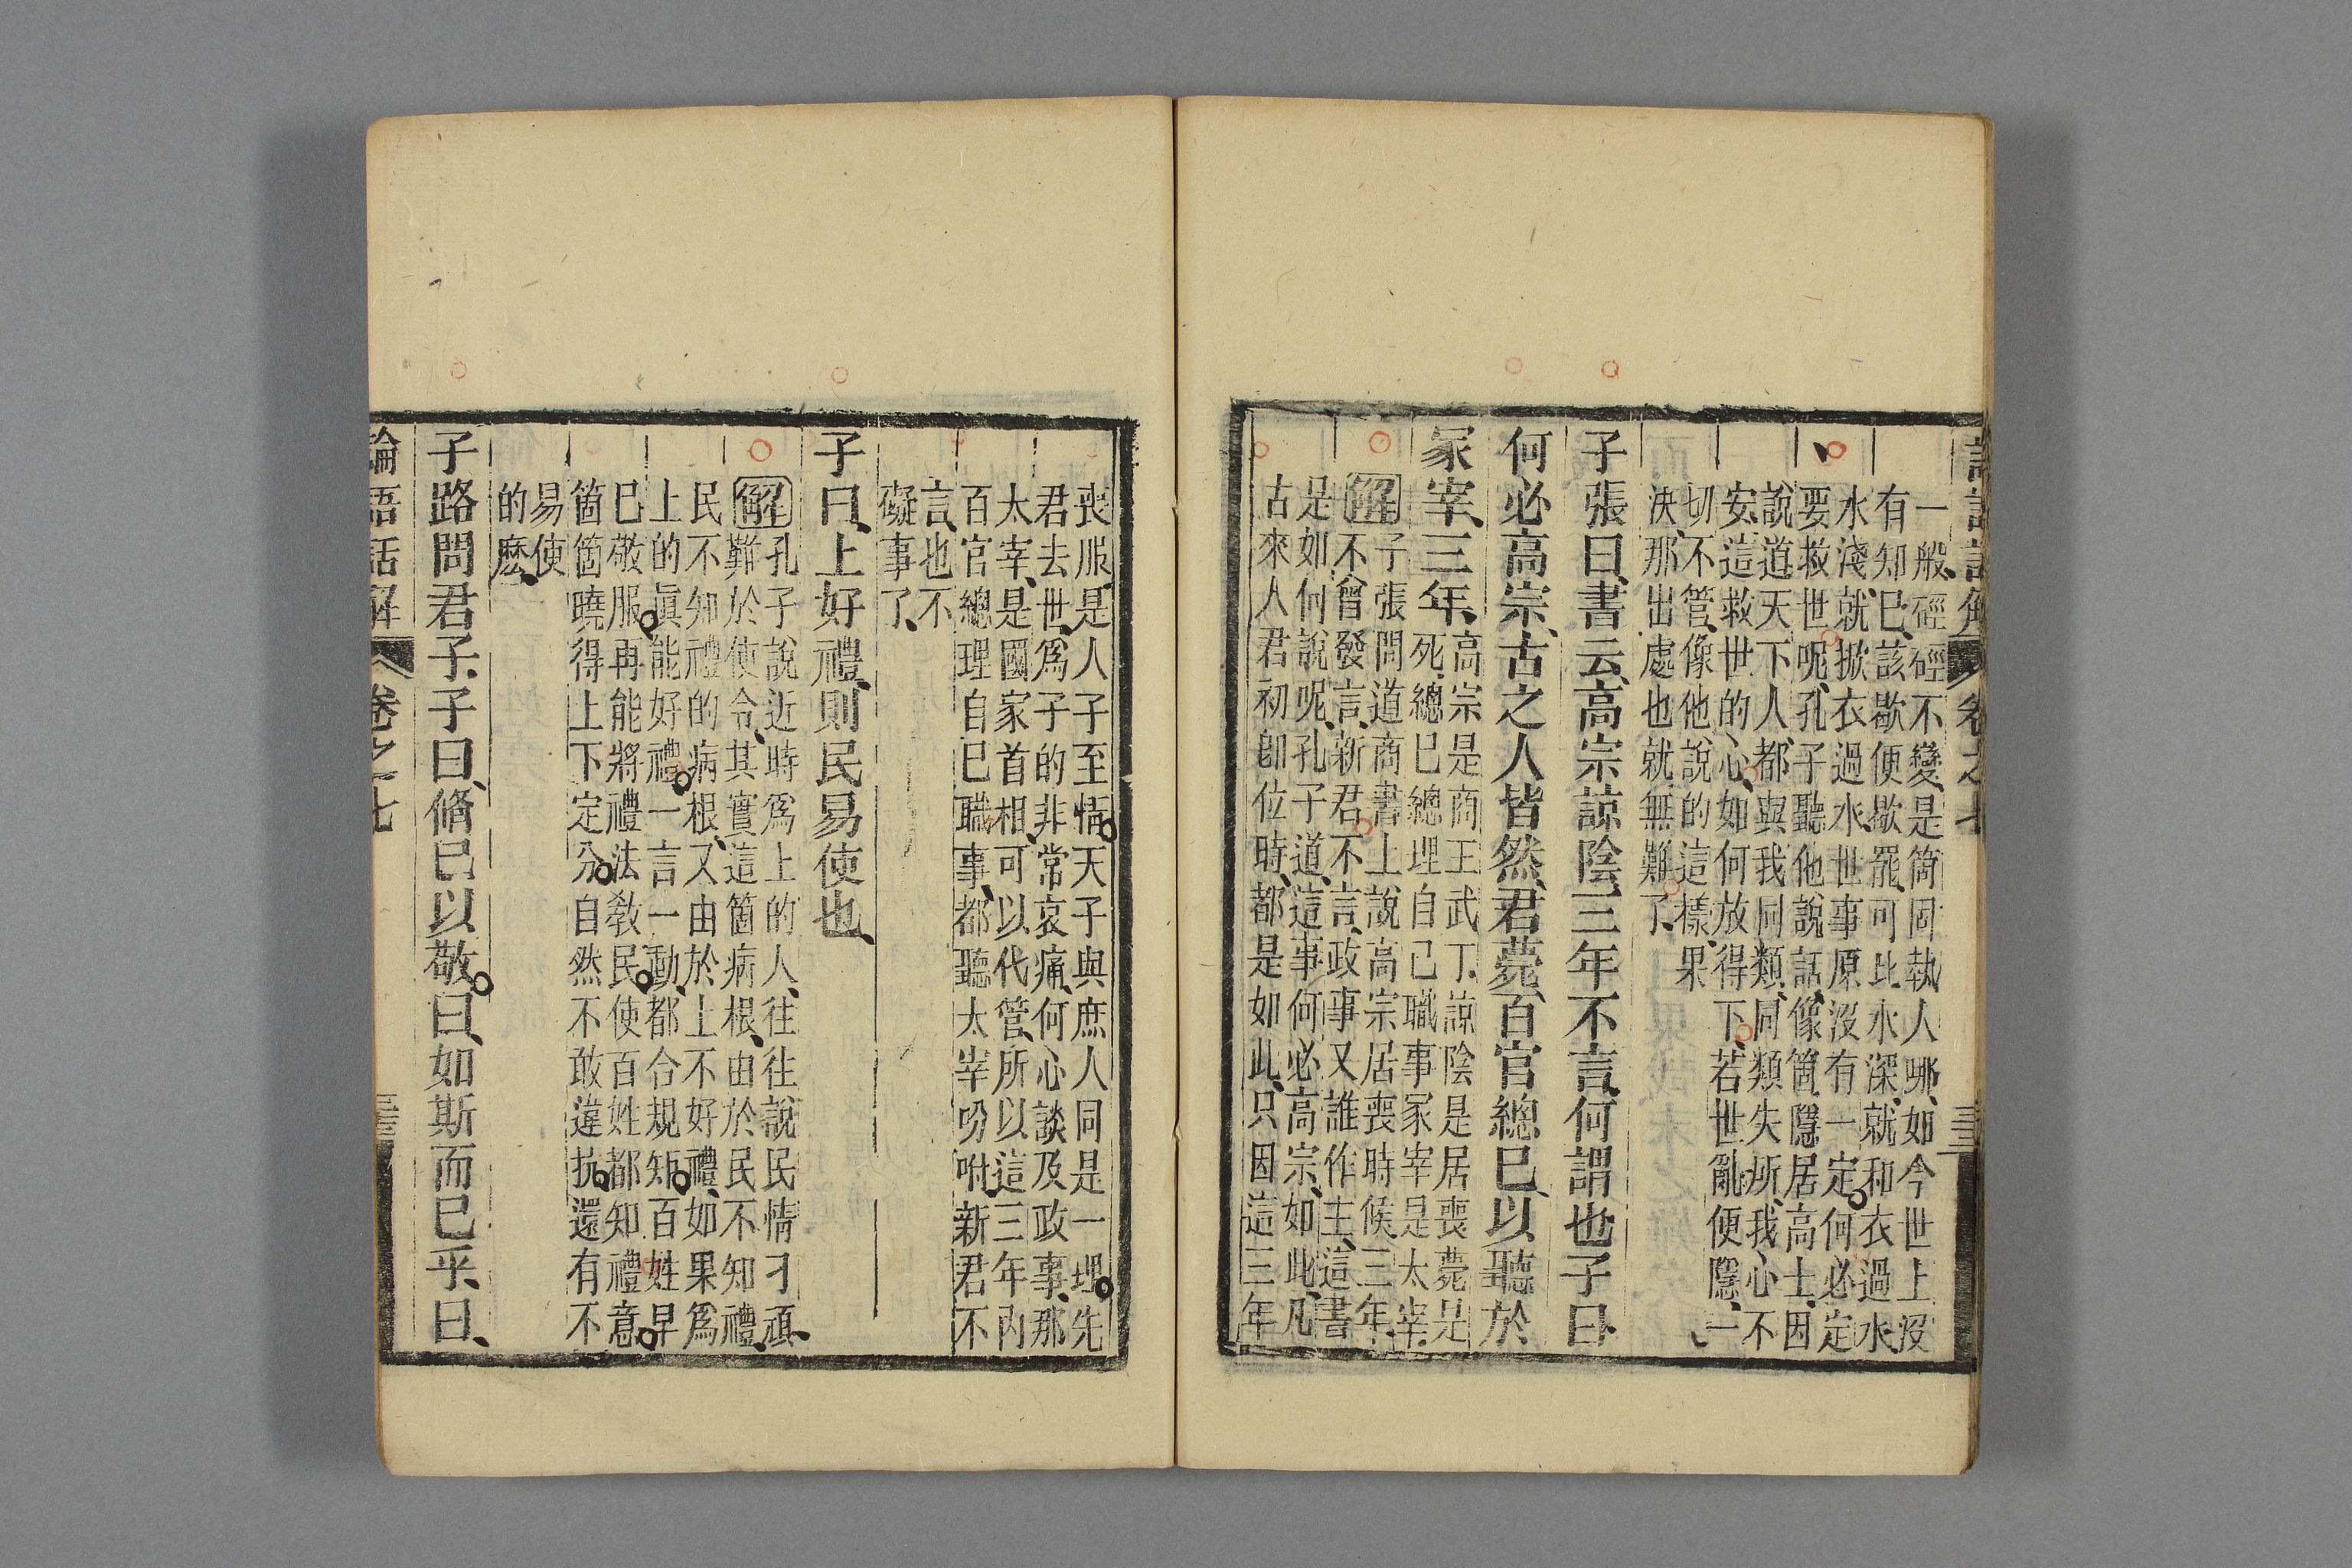 一般、硜硜不變、是箇固執人哪、如今世上沒
有知巳、該歇便歇罷、可比水深、就和衣過水、
水淺、就掀衣過水、世事原沒有一定、何必定
要救世呢、孔子聽他說話、像箇隱居高士、因
說道天下人、都與我同類、同類失所、我心不
安、這救世的心、如何放得下、若世亂便隱、一
切不管、像他說的這樣、果
決、那出處也就無難了、
子張曰、書云、高宗諒陰、三年不言、何謂也子曰、
何必高宗、古之人皆然、君薨、百官總巳、以聽於
冢宰、三年、
高宗是商王武丁、諒陰是居喪薨是
死、總巳總理自己職事冢宰是太宰、
解 子張問道商書上說高宗居喪時候三年、
不曾發言、新君不言、政事又誰作主、這書
是如何說呢、孔子道、這事何必高宗、如此、凡
古來人君初卽位時、都是如此、只因這三年
喪服、是人子至情、天子與庶人同是一理、先
君去世、爲子的非常哀痛、何心談及政事、那
太宰、是國家首相、可以代管、所以這三年內
百官總理自巳職事、都聽太宰吩咐、新君不
言、也不
礙事了、
子曰、上好禮、則民易使也、
解 孔子說近時爲上的人、往往說民情刁頑、
難於使令、其實這箇病根、由於民不知禮、
民不知禮的病根、又由於上不好禮、如果爲
上的眞能好禮、一言一動、都合規矩、百姓早
巳敬服、再能將禮法教民、使百姓都知禮意、
箇箇曉得上下定分、自然不敢違抗、還有不
易使
的麽、
子路問君子、子曰、脩巳以敬、曰、如斯而巳乎、曰、
論語話解 卷之七